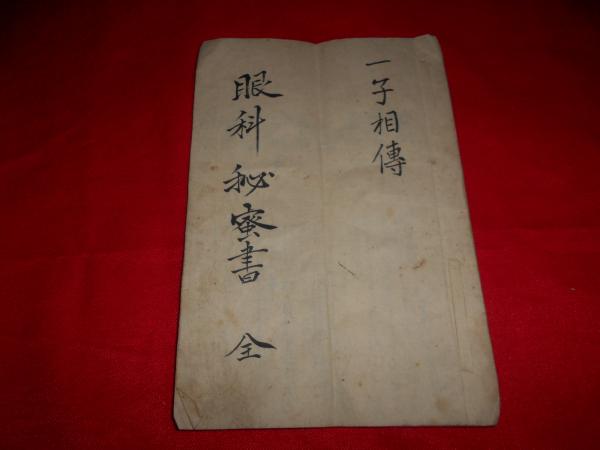 一子相傳
眼科秘蜜書 全